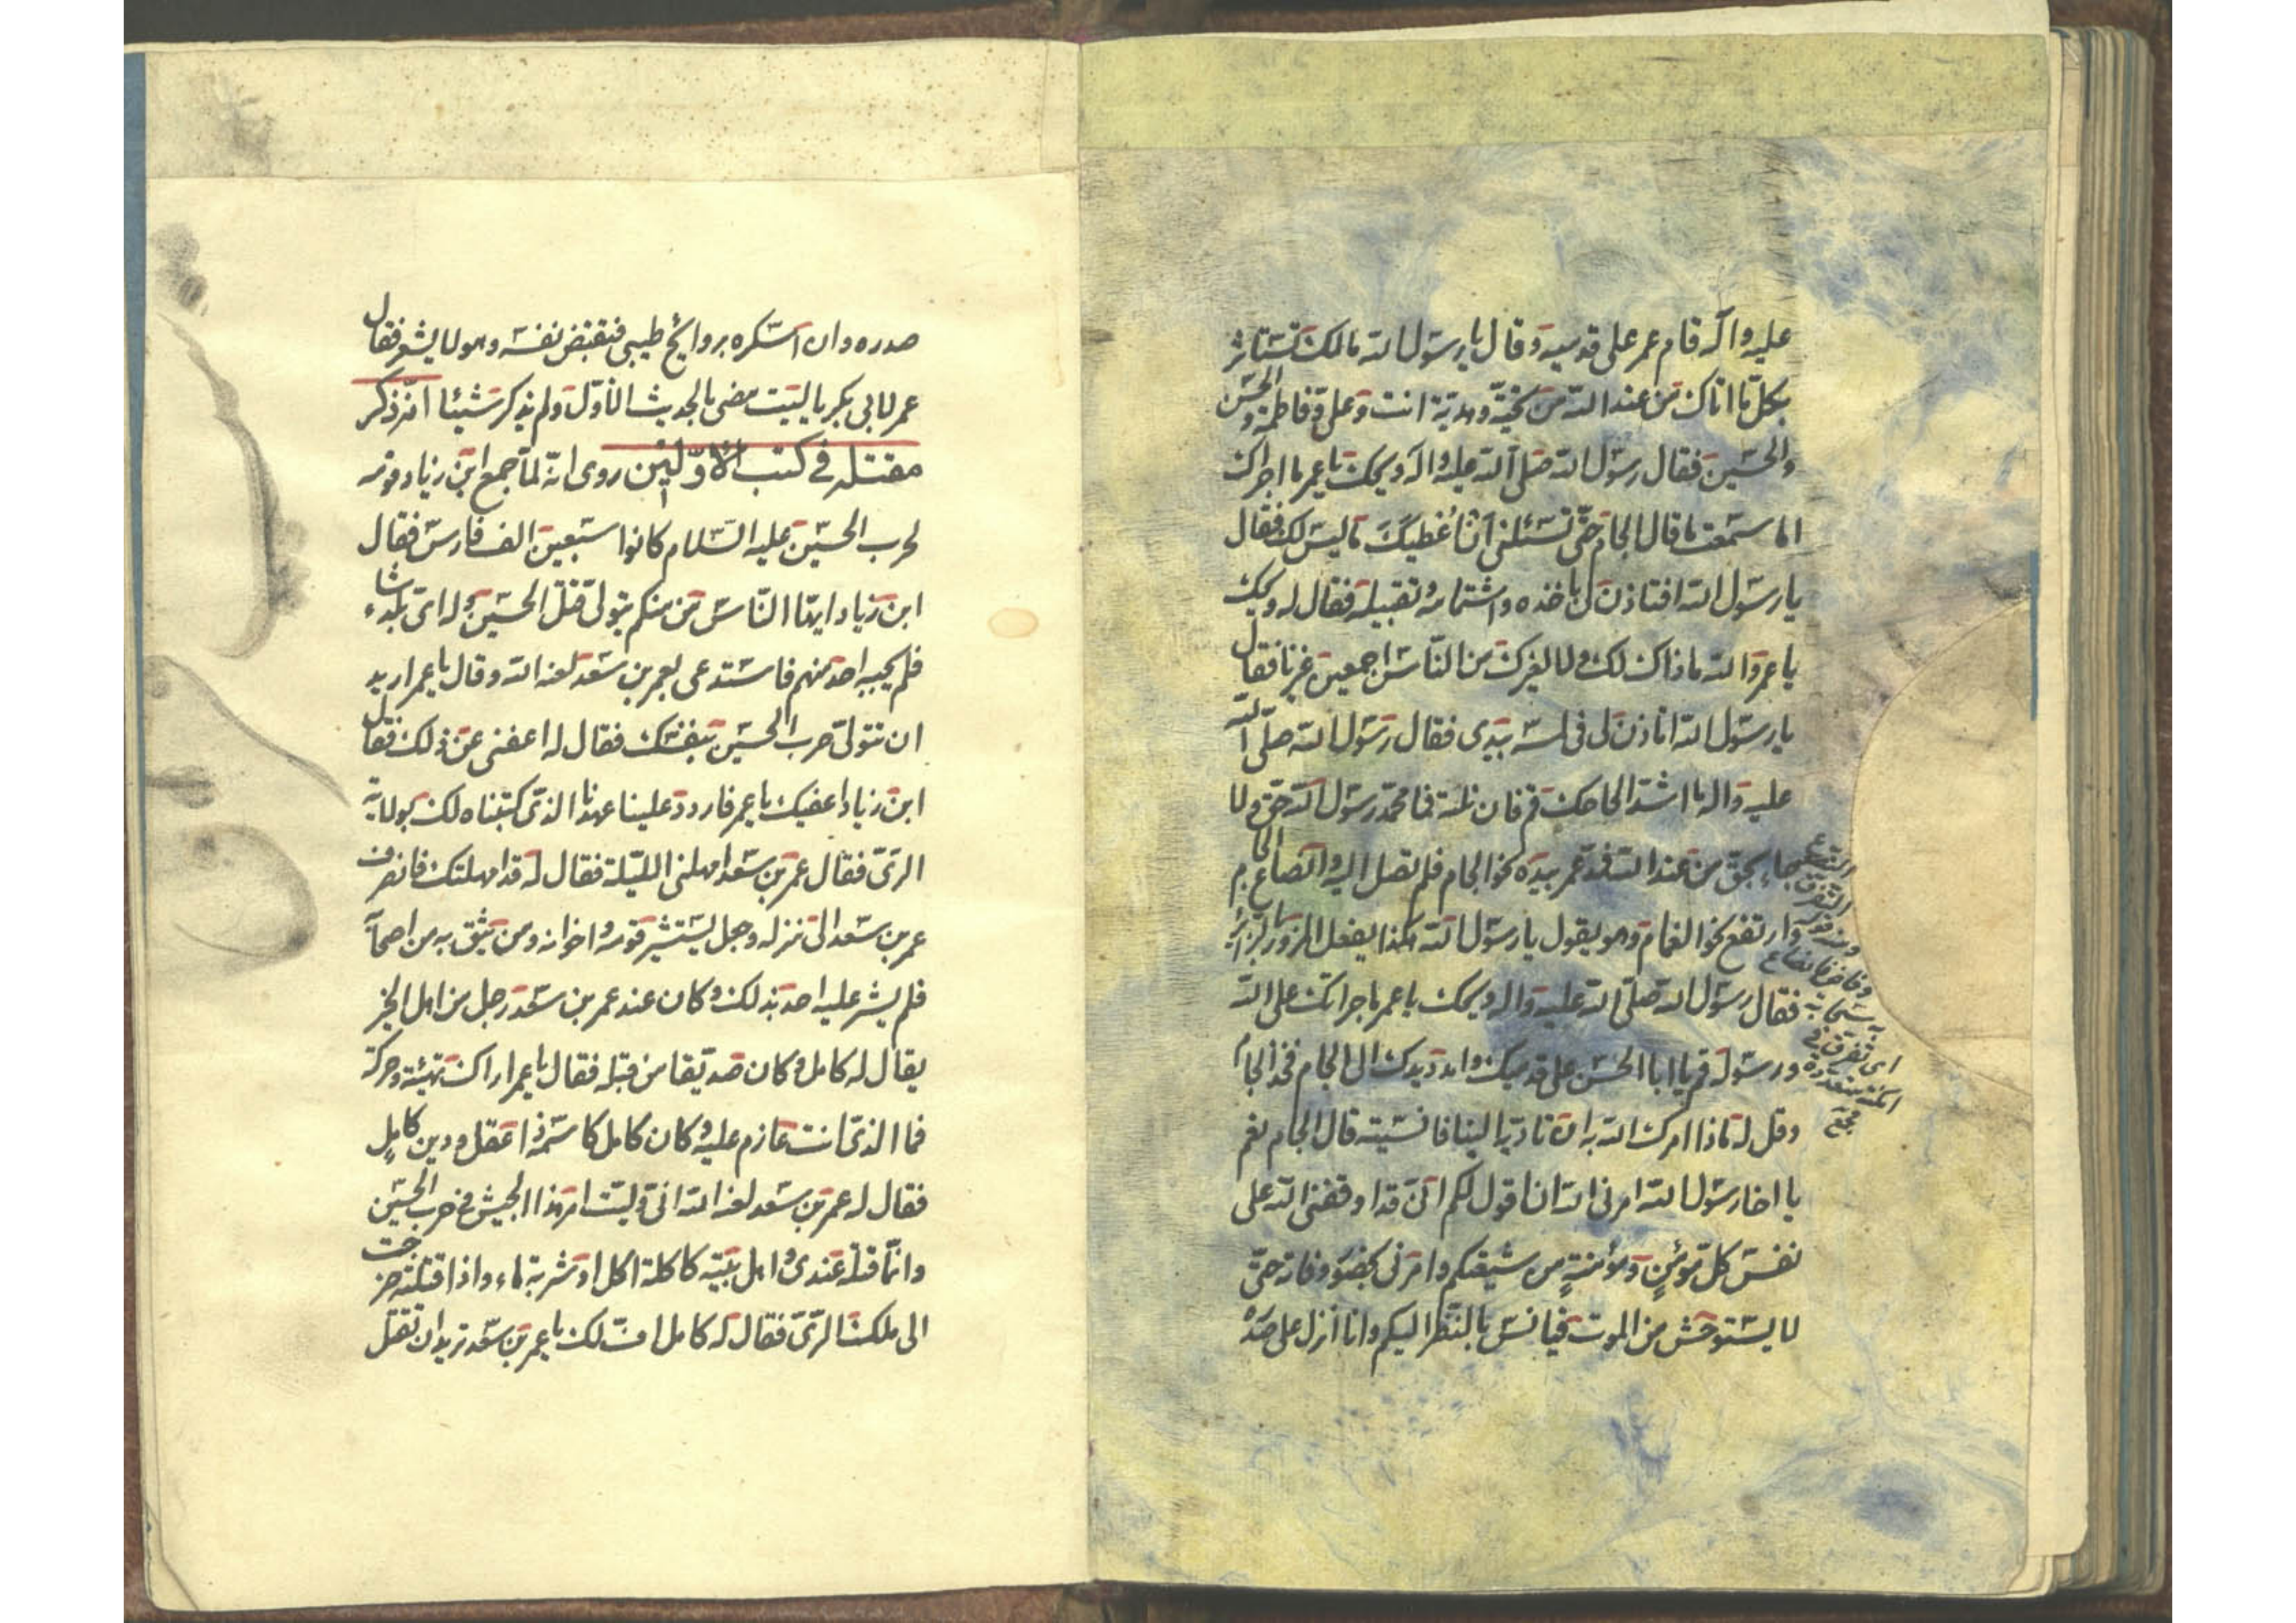 عليه وآله قام عمر على قدميه وقال يا رسول الله مالك تستاثر
بكل ما اتاك من عند الله من تحية وهدية انت وعلي وفاطمة والحسن
والحسين فقال رسول الله صلى الله عليه واله ويحك يا عمر ما اجراك
اما سمعت ما قال الجام حتى تسئلني ان اُعْطيكَ ما ليس لك فقال
يا رسول الله افتاذن لي باخذه واشتمامه وتقبيله فقال له ويحك
يا عمر والله ما ذاك لك ولا لغيرك من الناس اجمعين غيرنا فقال
يا رسول الله اتاذن لي في لمسه بيدي فقال رسول الله صلى الله
عليه واله ما اشد الحاحك قم فان نلته فما محمد رسول الله حق ولا
جاء بحق من عند الله فمد عمر بيده نحو الجام فلم تصل اليه وانصاع الجام
وارتفع نحو الغمام وهو يقول يا رسول الله هكذا يفعل المزور بالزائر
فقال رسول الله صلى الله عليه واله ويحك يا عمر ما جراتك على الله
ورسوله قم يا ابا الحسن على قدميك وامدد يدك الى الجام فخذ الجام
وقل له ماذا امرك الله به ان تاديه الينا فانسيته قال الجام نعم
يا اخا رسول الله امرني الله ان اقول لكم اني قد اوقفني الله على
نفس كل مؤمنٍ ومؤمنةٍ من شيعتكم وامرني بحضور وفاته حتى
لا يستوحش من الموت فيانس بالنظر اليكم وانا انزل على صدره
التصع
التفرق
ومنه
اى تفرق في
امكنة متعددة
مجمع
صدره وان اسكره بروايح طيبي فتقبض نفسه وهو لا يشعر فقال
عمر لابي بكر يا ليت مضى بالحديث الاول ولم يذكر شيئا امر ذكر
مقتله في كتب الاولين روى انه لما جمع ابن زياد قومه
لحرب الحسين عليه السلام كانوا سبعين الف فارس فقال
ابن زياد ايها الناس من منكم يتولى قتل الحسين وله اى بلد شاء
فلم يجبه احد منهم فاستدعى بعمر بن سعد لعنه الله وقال يا عمر اريد
ان تتولى حرب الحسين بنفسك فقال له اعفني عن ذلك فقال
ابن زياد اعفيك يا عمر فاردد علينا عهدنا الذي كتبناه لك بولاية
الري فقال عمر بن سعد امهلني الليلة فقال له قد امهلتك فانصرف
عمر بن سعد الى منزله وجعل يستشير قومه واخوانه ومن يثق به من اصحابه
فلم يشر عليه احد بذلك وكان عند عمر بن سعد رجل من اهل الخير
يقال له كامل وكان صديقا من قبله فقال يا عمر اراك بهيئة وحركة
فما الذي انت عازم عليه وكان كامل كاسمه ذا عقل ودين كاملٍ
فقال له عمر بن سعد لعنه الله اني وليت امر هذا الجيش في حرب الحسين
وانما قتله عندي واهل بيته كاكلة اكل او شربة ماء واذا قتلته خرجت
الى ملك الري فقال له كامل اف لك يا عمر بن سعد تريد ان تقتل